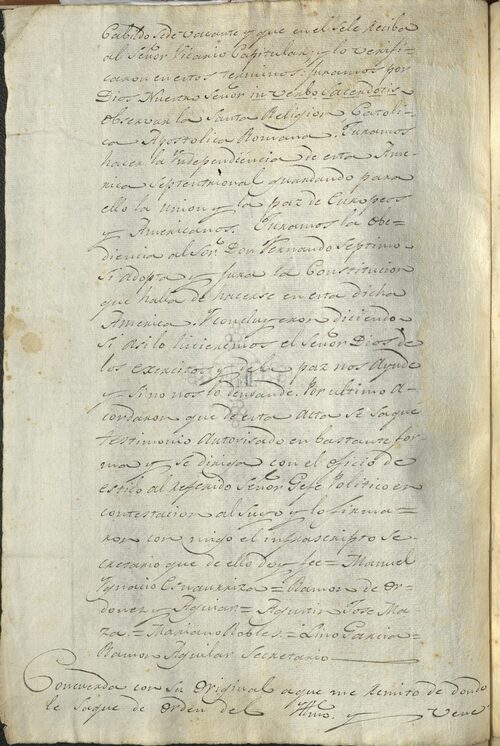 Cabildo Sede vacante y que en el Sele reciba
al Señor Vicario Capitular, y lo verifi-
caron en estos terminos: Juramos por
Dios Nuestro Señor in verbo Sacerdotis
observar la Santa Religion Catoli-
ca Apostolica Romana. Juramos
hacer la Independiencia de esta Ame-
rica Septentrional guardando para
ello la union y la paz de Europeos
y Americanos. Juramos la obe-
diencia al Sor. Don Fernando Septimo
Si adopta y jura la Constitucion
que halla de hacerse en esta dicha
America. Y concluyeron diciendo
Si asi lo hicieremos el Señor Dios de
los exercitos y de la paz nos Ayude
y Si no nos lo demande. Por ultimo A-
cordaron que de esta Acta Se Saque
testimonio Autorisado en bastante for-
ma y se dirija con el oficio de
estilo al referido Señor Gefe Politico en
contestacion al Suyo y lo firma-
ron con migo el infrascripto Se-
cretario que de ello doy fee = Manuel
Ignacio Esnaurriza = Ramon de Or-
doñez y Aguiar = Agustin Jose Ma-
za. = Mariano Robles = Lino Garcia =
Ramon Aguilar Secretario
Concuerda con Su original aque me remito de donde
le Saque de orden del Illmo. y Vene